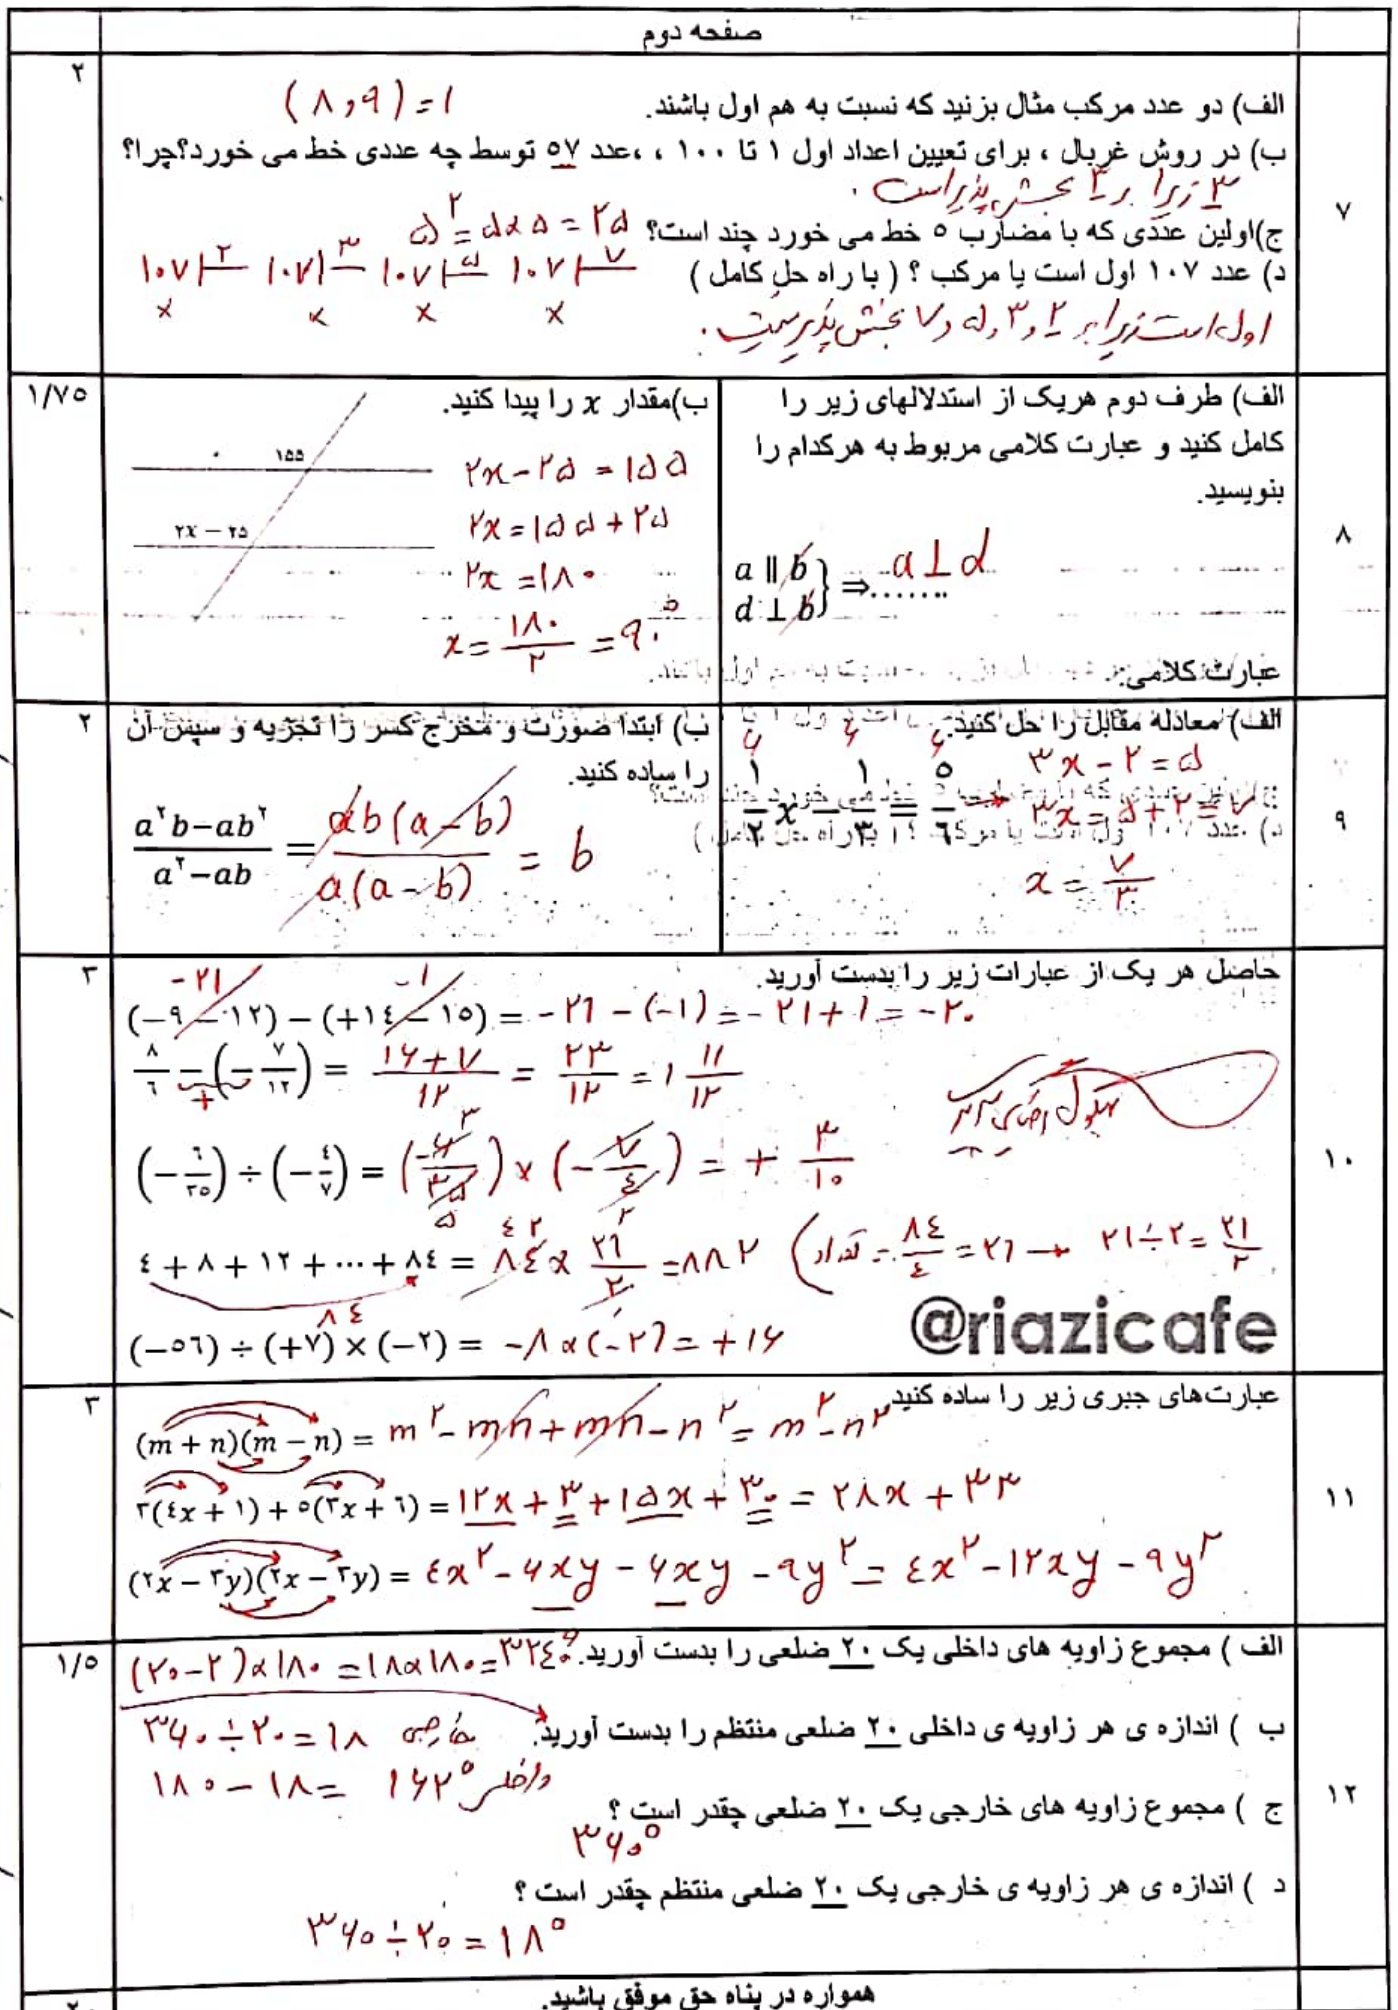 صفحه دوم
۷
۲
الف) دو عدد مرکب مثال بزنید که نسبت به هم اول باشند. (۸,۹)=۱
ب) در روش غربال ، برای تعیین اعداد اول ۱ تا ۱۰۰ ، ،عدد ۵۷ توسط چه عددی خط می خورد؟چرا؟
۳ زیرا بر ۳ بخش پذیر است .
ج)اولین عددی که با مضارب ۵ خط می خورد چند است؟ ۵^۲ = ۵×۵ = ۲۵
د) عدد ۱۰۷ اول است یا مرکب ؟ ( با راه حل کامل )
۱۰۷|۲ ۱۰۷|۳ ۱۰۷|۵ ۱۰۷|۷
× × × ×
اول است زیرا بر ۲ و ۳ و ۵ و ۷ بخش پذیر نیست .
۸
۱/۷۵
الف) طرف دوم هریک از استدلالهای زیر را
کامل کنید و عبارت کلامی مربوط به هرکدام را
بنویسید.
a ∥ b
d ⊥ b} ⇒....... a ⊥ d
عبارت کلامی:
ب)مقدار x را پیدا کنید.
۱۵۵
۲x − ۲۵
۲x − ۲۵ = ۱۵۵
۲x = ۱۵۵ + ۲۵
۲x = ۱۸۰
x = ۱۸۰/۲ = ۹۰°
۹
۲
الف) معادله مقابل را حل کنید.
۶ ۶ ۶
۱/۲ x − ۱/۳ = ۵/۶ →
۳x − ۲ = ۵
۳x = ۵ + ۲ = ۷
x = ۷/۳
ب) ابتدا صورت و مخرج کسر را تجزیه و سپس آن
را ساده کنید.
(a^۲b − ab^۲)/(a^۲ − ab) = ab(a − b)/a(a − b) = b
۱۰
۳
حاصل هر یک از عبارات زیر را بدست آورید.
−۲۱ −۱
(−۹ − ۱۲) − (+۱٤ − ۱۵) = −۲۱ − (−۱) = −۲۱ + ۱ = −۲۰
۸/۶ − (− ۷/۱۲) = (۱۶+۷)/۱۲ = ۲۳/۱۲ = ۱ ۱۱/۱۲
(− ۶/۳۵) ÷ (− ٤/۷) = (−۶/۳۵) × (−۷/٤) = + ۳/۱۰
٤ + ۸ + ۱۲ + ... + ۸٤ = ۸٤ × ۲۱/۲ = ۸۸۲ (تعداد = ۸٤/٤ = ۲۱ → ۲۱÷۲ = ۲۱/۲
۸٤
@riazicafe
(−۵۶) ÷ (+۷) × (−۲) = −۸ × (−۲) = +۱۶
۱۱
۳
عبارت‌های جبری زیر را ساده کنید
(m + n)(m − n) = m^۲ − mn + mn − n^۲ = m^۲ − n^۲
۳(٤x + ۱) + ۵(۳x + ۶) = ۱۲x + ۳ + ۱۵x + ۳۰ = ۲۸x + ۳۳
(۲x − ۳y)(۲x − ۳y) = ٤x^۲ − ۶xy − ۶xy − ۹y^۲ = ٤x^۲ − ۱۲xy − ۹y^۲
۱۲
۱/۵
الف ) مجموع زاویه های داخلی یک ۲۰ ضلعی را بدست آورید. (۲۰−۲)×۱۸۰ = ۱۸×۱۸۰ = ۳۲٤۰°
ب ) اندازه ی هر زاویه ی داخلی ۲۰ ضلعی منتظم را بدست آورید. ۳۶۰ ÷ ۲۰ = ۱۸ خارجی
۱۸۰ − ۱۸ = ۱۶۲° داخلی
ج ) مجموع زاویه های خارجی یک ۲۰ ضلعی چقدر است ؟
۳۶۰°
د ) اندازه ی هر زاویه ی خارجی یک ۲۰ ضلعی منتظم چقدر است ؟
۳۶۰ ÷ ۲۰ = ۱۸°
همواره در پناه حق موفق باشید.
۲۰